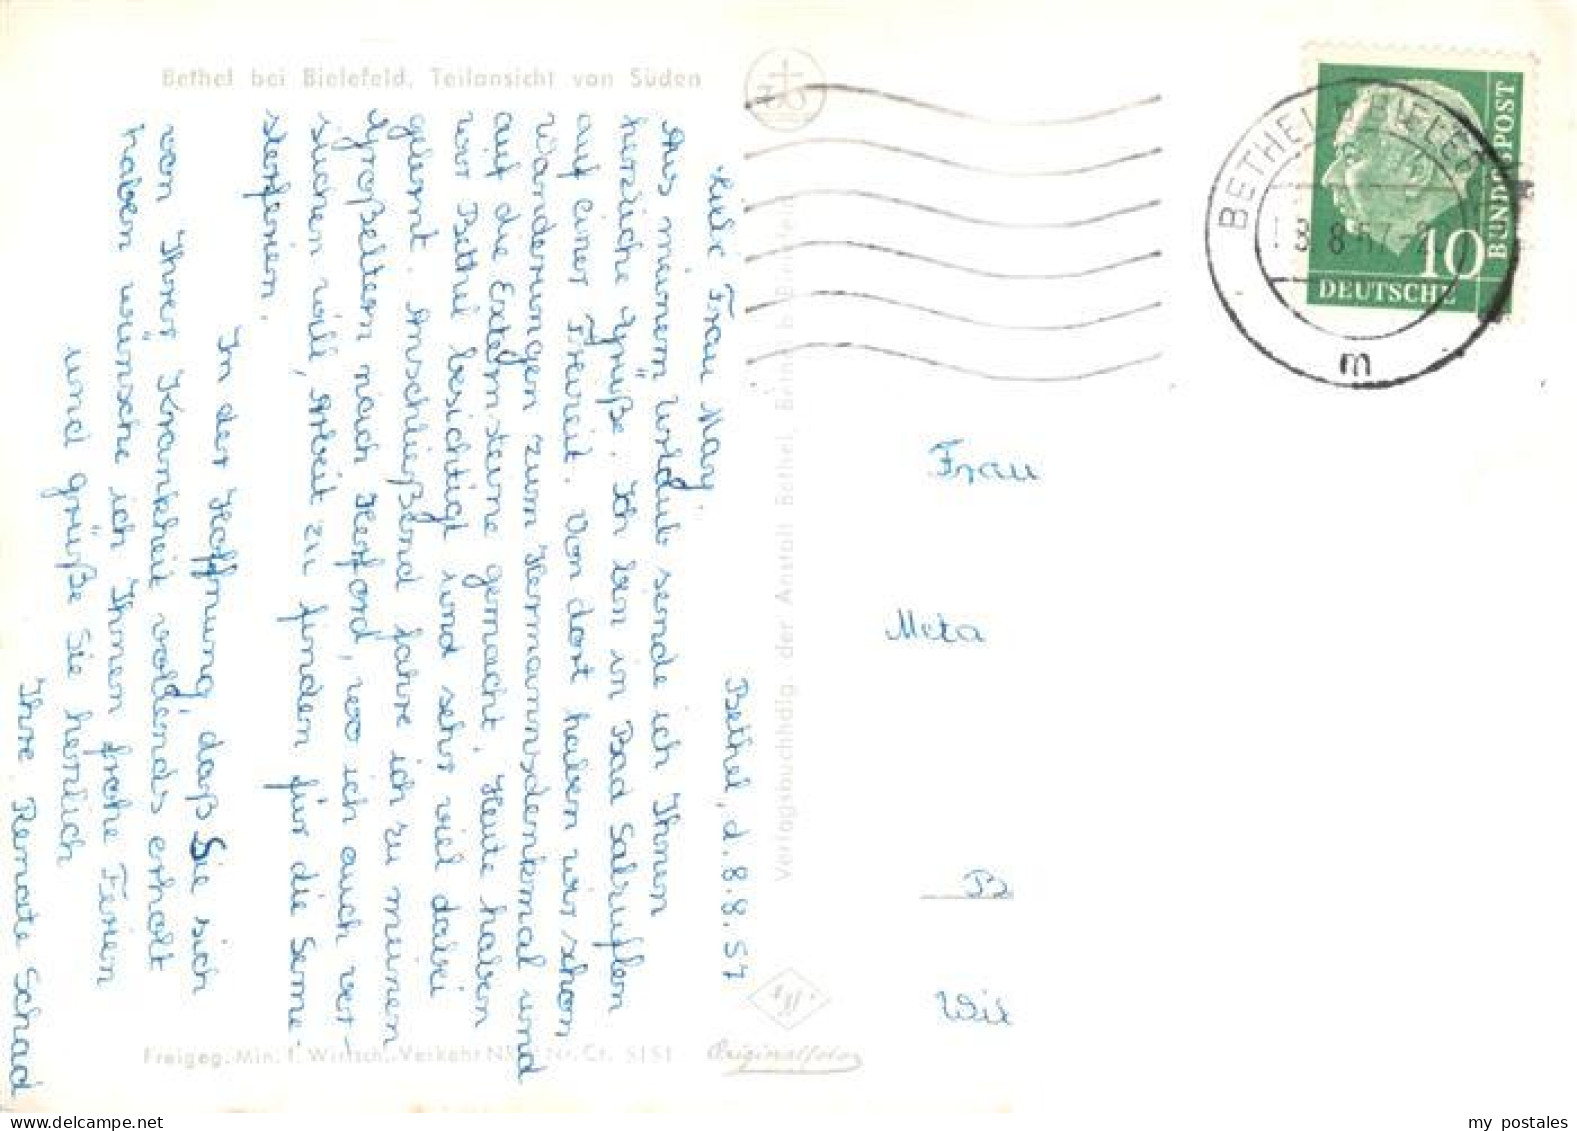 Bethel bei Bielefeld, Teilansicht von Süden
Bethel, d. 8. 8. 57
Liebe Frau May
Aus meinem Urlaub sende ich Ihnen
herzliche Grüße. Ich bin in Bad Salzuflen
auf einer Freizeit. Von dort haben wir schon
Wanderungen zum Hermannsdenkmal und
auf die Externsteine gemacht. Heute haben
wir Bethel besichtigt und sehr viel dabei
gelernt. Anschließend fahre ich zu meinen
Großeltern nach Herford, wo ich auch ver-
suchen will, Arbeit zu finden für die Seme-
sterferien.
In der Hoffnung, daß Sie sich
von Ihrer Krankheit vollends erholt
haben wünsche ich Ihnen frohe Ferien
und grüße Sie herzlich
Ihre Renate Schad
Verlagsbuchhdlg. der Anstalt Bethel, Bethel b. Bielefeld
Freigeg. Min. f. Wirtsch. Verkehr NRW Nr. Ct. 5151
Originalfoto
BETHEL B BIELEF
8.8.57-2
m
DEUTSCHE
BUNDESPOST
10
Frau
Meta
my postales